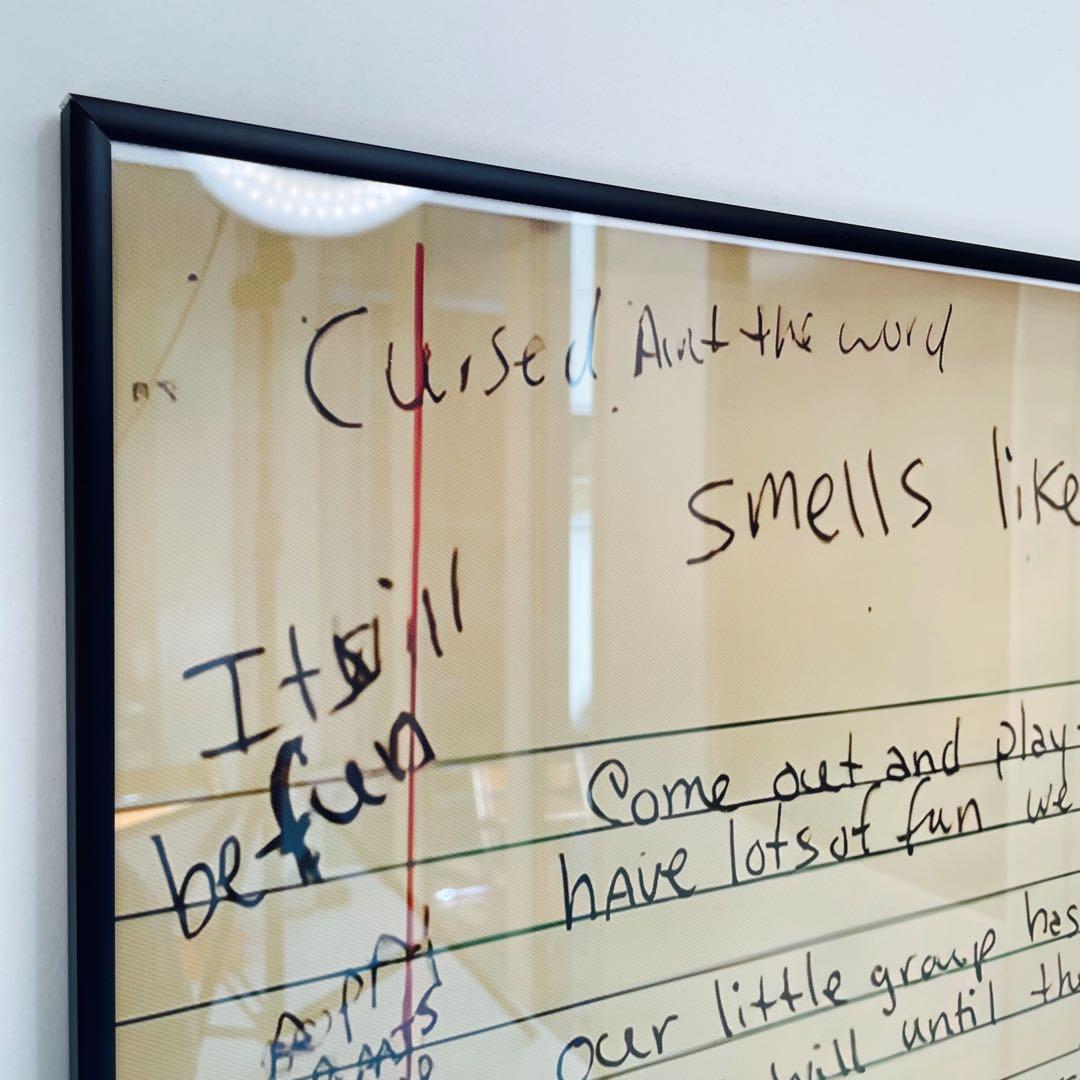 Cursed Aint the word
smells like
It will
be fun
Come out and play
have lots of fun we
our little group has
will until the